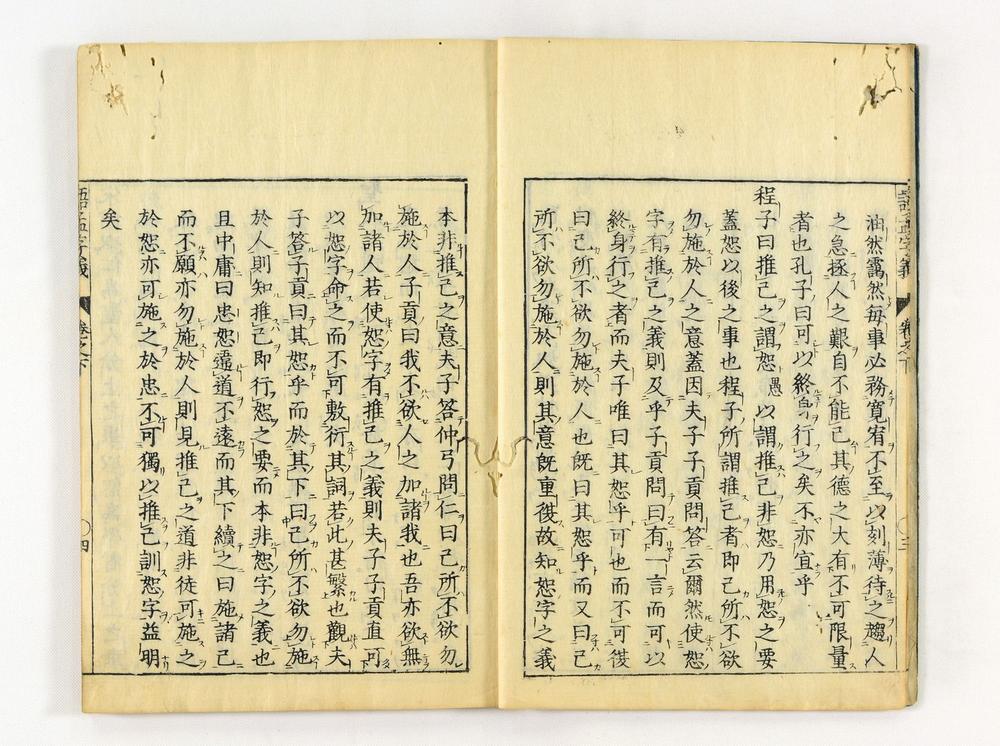 油然靄然每事必務寛宥不至以刻薄待之趨人
之急拯人之艱自不能已其德之大有不可限量
者也孔子曰可以終身行之矣不亦宜乎
程子曰推己之謂恕愚以謂推己非恕乃用恕之要
蓋恕以後之事也程子所謂推己者即己所不欲
勿施於人之意蓋因夫子子貢問答云爾然使恕
字有推己之義則及乎子貢問曰有一言而可以
終身行之者而夫子唯曰其恕乎可也而不可復
曰己所不欲勿施於人也既曰其恕乎而又曰己
所不欲勿施於人則其意既重復故知恕字之義
語孟字義
卷之下
三
本非推己之意夫子答仲弓問仁曰己所不欲勿
施於人子貢曰我不欲人之加諸我也吾亦欲無
加諸人若使恕字有推己之義則夫子子貢直可
以恕字命之而不可敷衍其詞若此甚繁也觀夫
子答子貢曰其恕乎而於其下曰己所不欲勿施
於人則知推己即行恕之要而本非恕字之義也
且中庸曰忠恕違道不遠而其下續之曰施諸己
而不願亦勿施於人則見推己之道非徒可施之
於恕亦可施之於忠不可獨以推己訓恕字益明
矣
語孟字義
卷之下
四